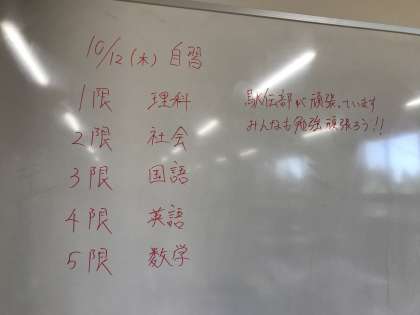 10/12(木) 自習
1限 理科
2限 社会
3限 国語
4限 英語
5限 数学
駅伝部が頑張っています
みんなも勉強頑張ろう!!